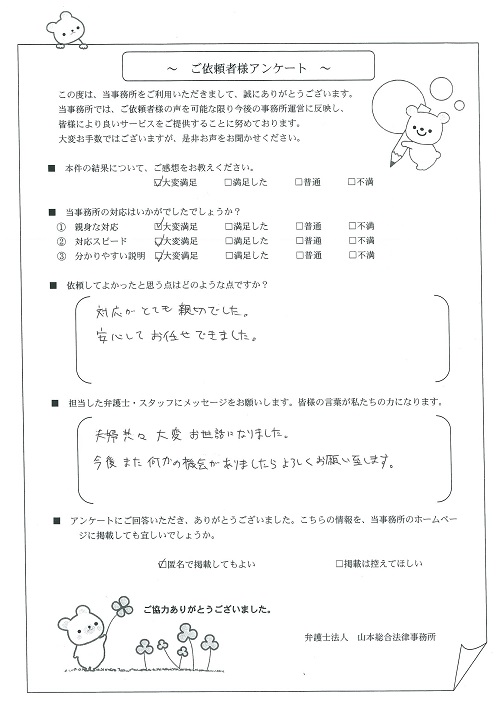 ～ ご依頼者様アンケート ～
この度は、当事務所をご利用いただきまして、誠にありがとうございます。
当事務所では、ご依頼者様の声を可能な限り今後の事務所運営に反映し、
皆様により良いサービスをご提供することに努めております。
大変お手数ではございますが、是非お声をお聞かせください。
■ 本件の結果について、ご感想をお教えください。
☑大変満足 □満足した □普通 □不満
■ 当事務所の対応はいかがでしたでしょうか？
① 親身な対応 ☑大変満足 □満足した □普通 □不満
② 対応スピード ☑大変満足 □満足した □普通 □不満
③ 分かりやすい説明 ☑大変満足 □満足した □普通 □不満
■ 依頼してよかったと思う点はどのような点ですか？
対応がとても親切でした。
安心してお任せできました。
■ 担当した弁護士・スタッフにメッセージをお願いします。皆様の言葉が私たちの力になります。
夫婦共々大変お世話になりました。
今後また何かの機会がありましたらよろしくお願い致します。
■ アンケートにご回答いただき、ありがとうございました。こちらの情報を、当事務所のホームペー
ジに掲載しても宜しいでしょうか。
☑匿名で掲載してもよい □掲載は控えてほしい
ご協力ありがとうございました。
弁護士法人 山本総合法律事務所